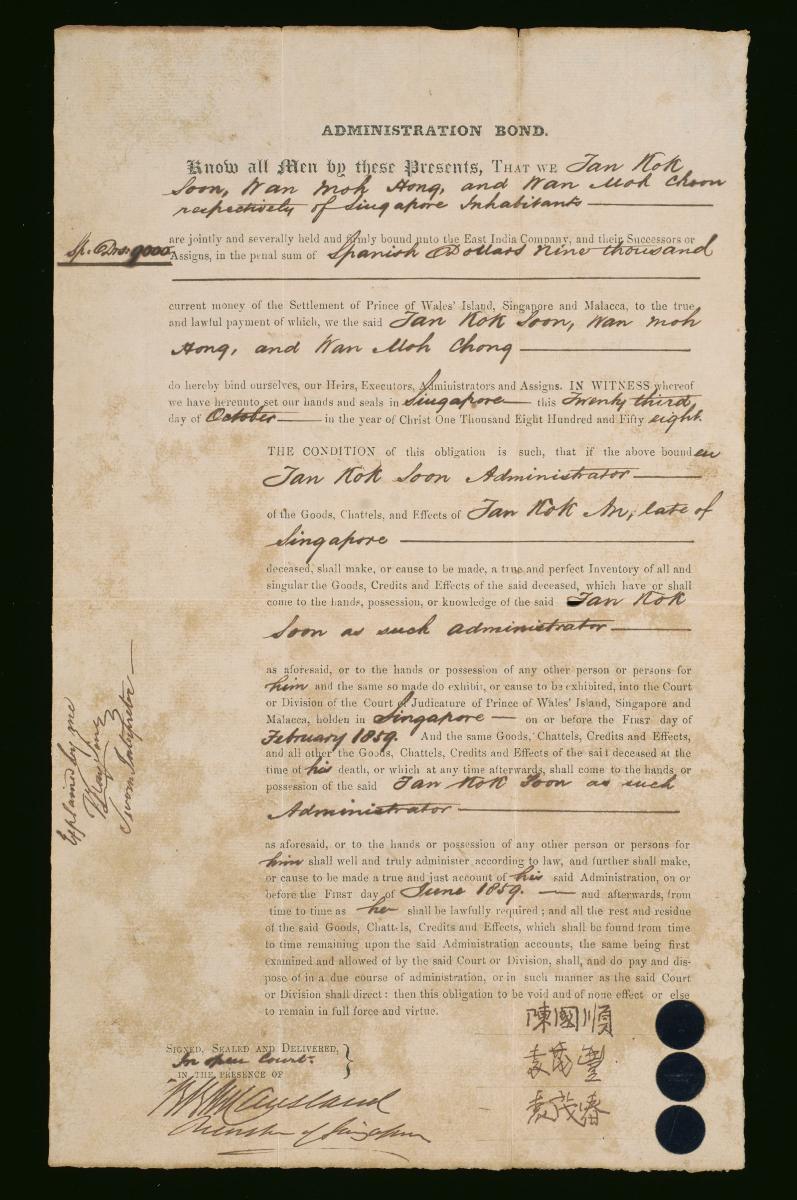 ADMINISTRATION BOND.
Know all Men by these Presents, THAT WE Tan Kok
Soon, Wan Moh Hong, and Wan Moh Choon
respectively of Singapore Inhabitants
are jointly and severally held and firmly bound unto the East India Company, and their Successors or
Sp. Drs. 9000
Assigns, in the penal sum of Spanish Dollars nine thousand
current money of the Settlement of Prince of Wales' Island, Singapore and Malacca, to the true
and lawful payment of which, we the said Tan Kok Soon, Wan Moh
Hong, and Wan Moh Chong
do hereby bind ourselves, our Heirs, Executors, Administrators and Assigns. IN WITNESS whereof
we have hereunto set our hands and seals in Singapore this Twenty third
day of October in the year of Christ One Thousand Eight Hundred and Fifty eight.
THE CONDITION of this obligation is such, that if the above bounden
Tan Kok Soon Administrator
of the Goods, Chattels, and Effects of Tan Kok An, late of
Singapore
deceased, shall make, or cause to be made, a true and perfect Inventory of all and
singular the Goods, Credits and Effects of the said deceased, which have or shall
come to the hands, possession, or knowledge of the said Tan Kok
Soon as such administrator
as aforesaid, or to the hands or possession of any other person or persons for
him and the same so made do exhibit, or cause to be exhibited, into the Court
or Division of the Court of Judicature of Prince of Wales' Island, Singapore and
Malacca, holden in Singapore on or before the FIRST day of
February 1859. And the same Goods, Chattels, Credits and Effects,
and all other the Goods, Chattels, Credits and Effects of the said deceased at the
time of his death, or which at any time afterwards, shall come to the hands or
possession of the said Tan Kok Soon as such
Administrator
as aforesaid, or to the hands or possession of any other person or persons for
him shall well and truly administer according to law, and further shall make,
or cause to be made a true and just account of his said Administration, on or
before the FIRST day of June 1859. and afterwards, from
time to time as he shall be lawfully required; and all the rest and residue
of the said Goods, Chattels, Credits and Effects, which shall be found from time
to time remaining upon the said Administration accounts, the same being first
examined and allowed of by the said Court or Division, shall, and do pay and dis-
pose of in a due course of administration, or in such manner as the said Court
or Division shall direct: then this obligation to be void and of none effect or else
to remain in full force and virtue.
Explained by me
Sworn Interpreter
SIGNED, SEALED AND DELIVERED,
In open Court.
IN THE PRESENCE OF
of Singapore
陳國順
袁茂豐
袁茂春